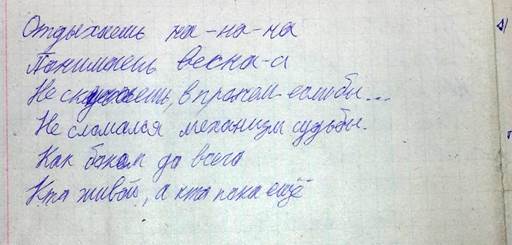 Отдыхаешь на-на-на
Понимаешь весна-а
Не скучаешь, в прошлом если бы...
Не сломался механизм судьбы.
Как до всего
Кто живой, а кто пока ещё